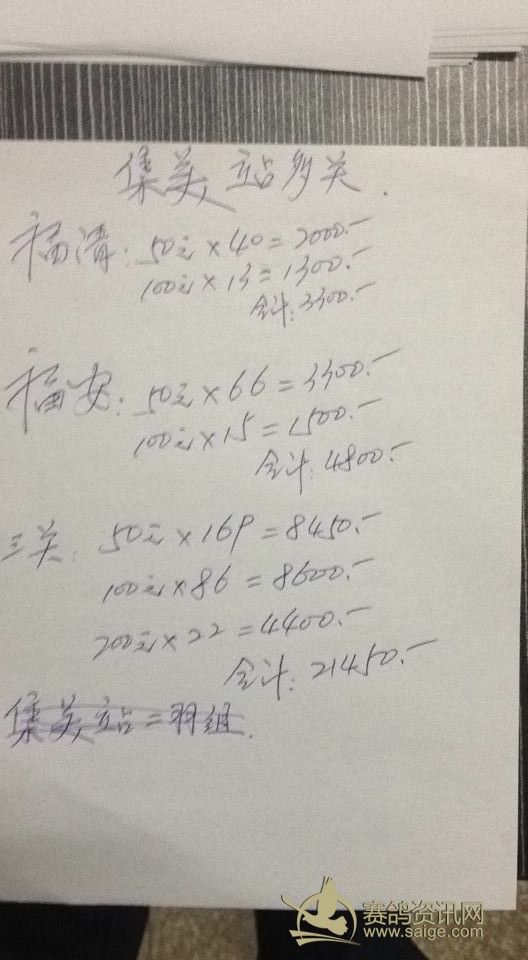 集美站多关.
福清: 50元×40=2000.-
100元×13=1300.-
合计:3300.-
福安: 50元×66=3300.-
100元×15=1500.-
合计:4800.-
三关: 50元×169=8450.-
100元×86=8600.-
200元×22=4400.-
合计:21450.-
集美站二羽组.
赛鸽资讯网
www.saige.com